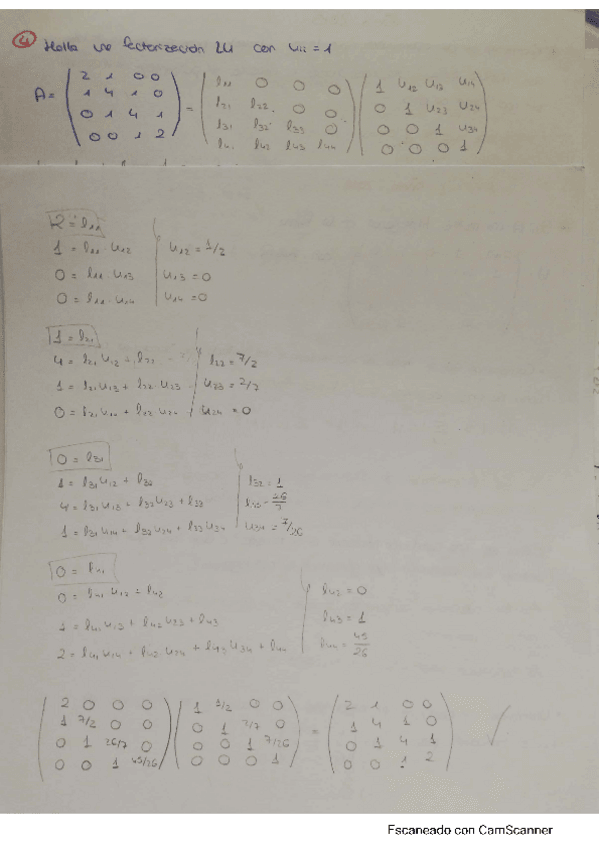 4 Halla una factorización LU con uii = 1
A = ( 2 1 0 0 ; 1 4 1 0 ; 0 1 4 1 ; 0 0 1 2 ) = ( l11 0 0 0 ; l21 l22 0 0 ; l31 l32 l33 0 ; l41 l42 l43 l44 ) ( 1 u12 u13 u14 ; 0 1 u23 u24 ; 0 0 1 u34 ; 0 0 0 1 )
2 = l11
1 = l11 · u12 u12 = 1/2
0 = l11 · u13 u13 = 0
0 = l11 · u14 u14 = 0
1 = l21
4 = l21 u12 + l22 l22 = 7/2
1 = l21 u13 + l22 · u23 u23 = 2/7
0 = l21 u14 + l22 u24 u24 = 0
0 = l31
1 = l31 u12 + l32 l32 = 1
4 = l31 u13 + l32 u23 + l33 l33 = 26/7
1 = l31 u14 + l32 u24 + l33 u34 u34 = 7/26
0 = l41
0 = l41 u12 + l42 l42 = 0
1 = l41 u13 + l42 u23 + l43 l43 = 1
2 = l41 u14 + l42 u24 + l43 u34 + l44 l44 = 45/26
( 2 0 0 0 ; 1 7/2 0 0 ; 0 1 26/7 0 ; 0 0 1 45/26 ) ( 1 1/2 0 0 ; 0 1 2/7 0 ; 0 0 1 7/26 ; 0 0 0 1 ) = ( 2 1 0 0 ; 1 4 1 0 ; 0 1 4 1 ; 0 0 1 2 ) ✓
Escaneado con CamScanner